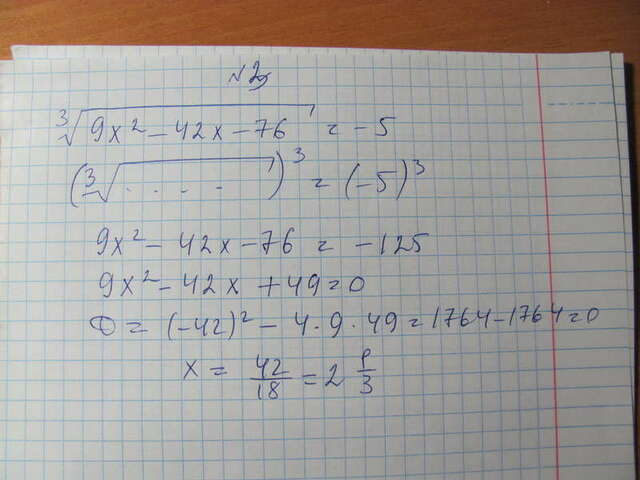 №2
∛(9x² - 42x - 76) = -5
(∛(. . . .))³ = (-5)³
9x² - 42x - 76 = -125
9x² - 42x + 49 = 0
D = (-42)² - 4 · 9 · 49 = 1764 - 1764 = 0
x = 42/18 = 2 1/3